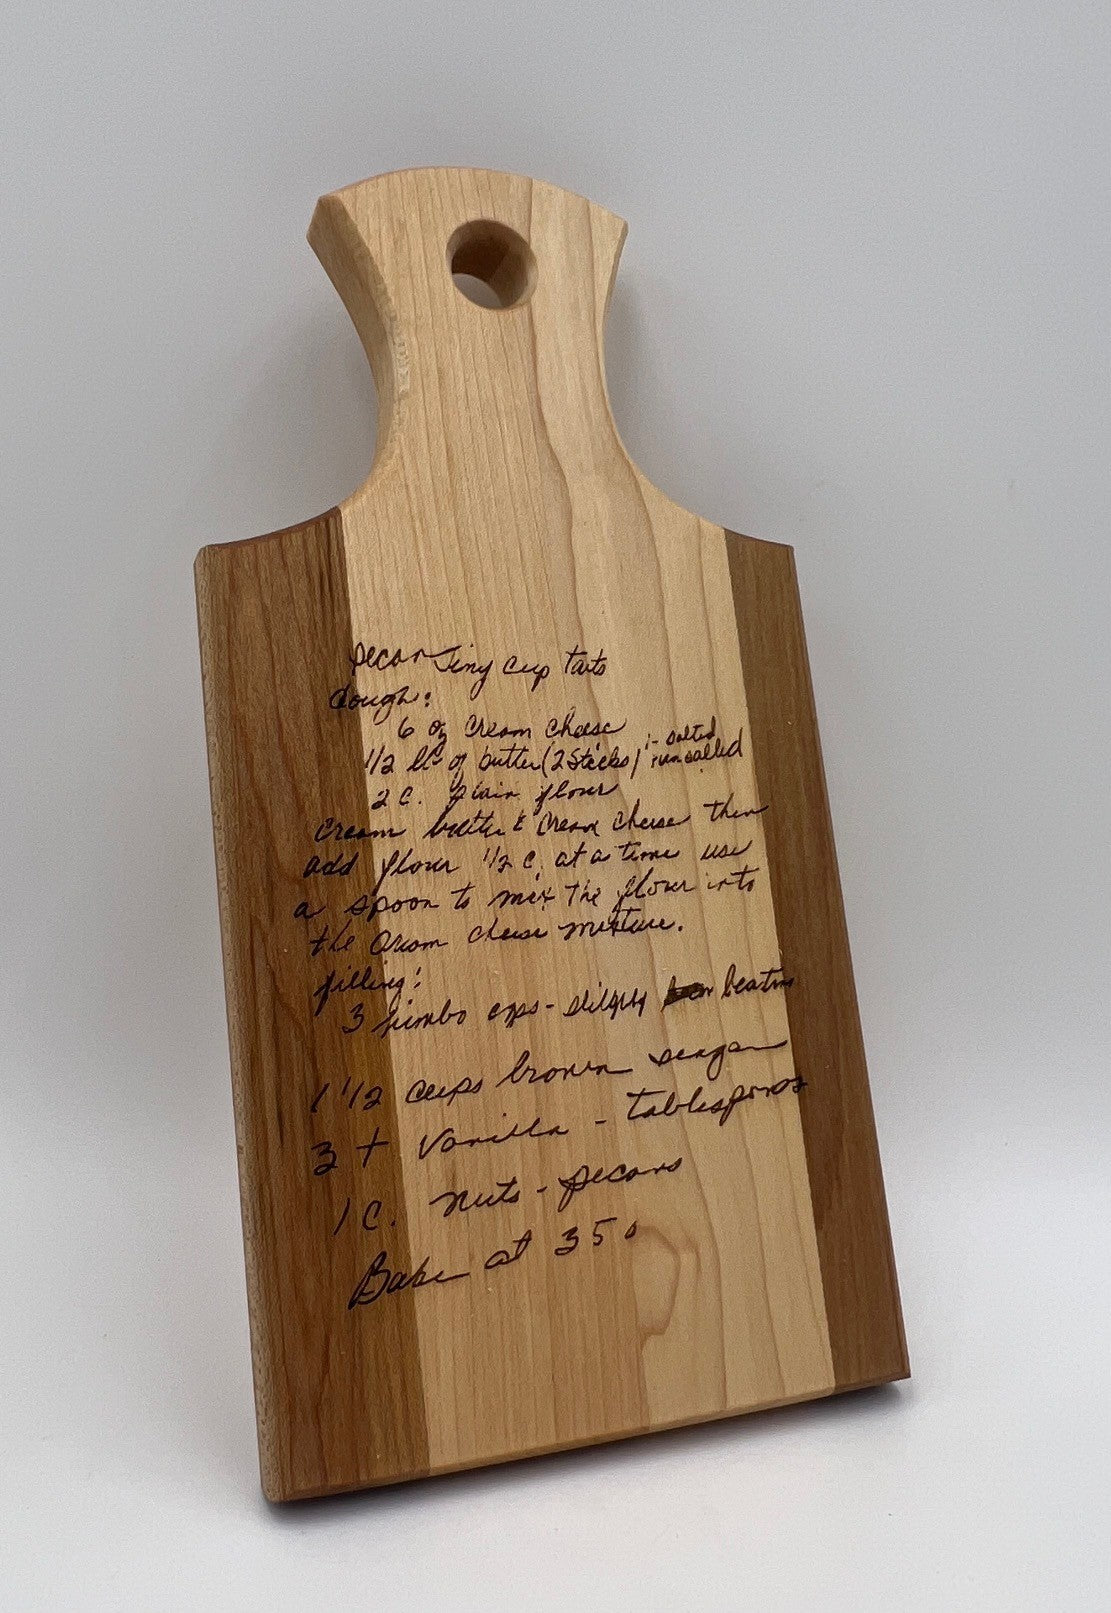 Pecan Tiny Cup Tarts
dough:
6 oz Cream cheese
1/2 lb of butter (2 Sticks) 1- salted
1 unsalted
2 c. plain flour
Cream butter & Cream cheese then
add flour 1/2 c. at a time use
a spoon to mix the flour into
the Cream cheese mixture.
filling:
3 jumbo eggs - beaten
1 1/2 cups brown sugar
3 T Vanilla - tablespoons
1 C. nuts - pecans
Bake at 350